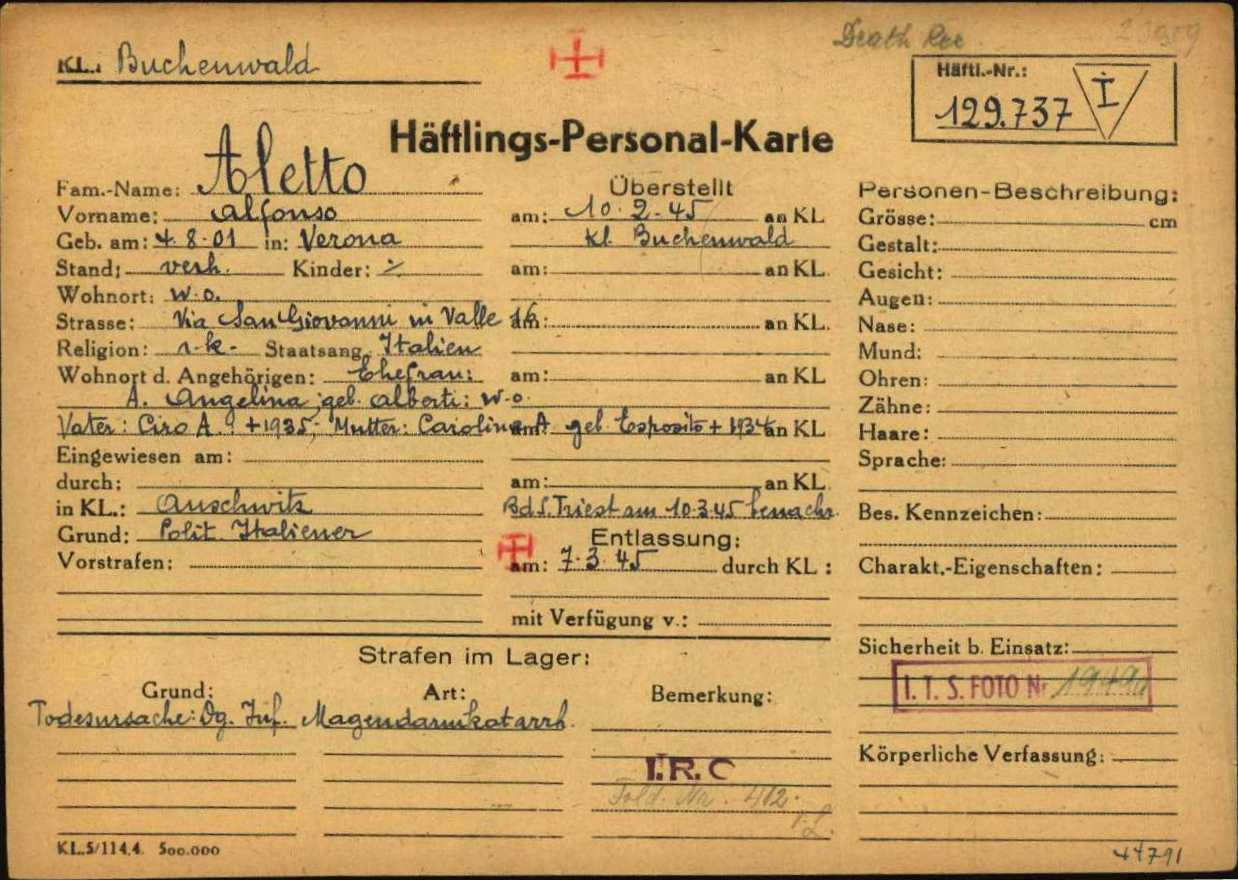 Death Rec
KL.: Buchenwald
Häftl.-Nr.:
129.737 I
Häftlings-Personal-Karte
Fam.-Name: Aletto
Vorname: Alfonso
Geb. am: 4.8.01 in: Verona
Stand: verh. Kinder: %
Wohnort: w.o.
Strasse: Via San Giovanni in Valle 16
Religion: r.k. Staatsang. Italien
Wohnort d. Angehörigen: Ehefrau:
A. Angelina, geb. Alberti: w.o.
Vater: Ciro A. + 1935; Mutter: Carolina A. geb. Esposito + 1934
Eingewiesen am:
durch:
in KL.: Auschwitz
Grund: Polit. Italiener
Vorstrafen:
Überstellt
am: 10.2.45 an KL
Kl. Buchenwald
am: an KL.
am: an KL.
am: an KL
am: an KL
am: an KL.
BdS. Triest am 10.3.45 benachr.
Entlassung:
am: 7.3.45 durch KL:
mit Verfügung v.:
Personen-Beschreibung:
Grösse: cm
Gestalt:
Gesicht:
Augen:
Nase:
Mund:
Ohren:
Zähne:
Haare:
Sprache:
Bes. Kennzeichen:
Charakt.-Eigenschaften:
Sicherheit b. Einsatz:
I.T.S. FOTO Nr
Körperliche Verfassung:
Strafen im Lager:
Grund: Art: Bemerkung:
Todesursache: Magendarmkatarrh.
I.R.O
412
KL.5/114.4. 500.000
44791